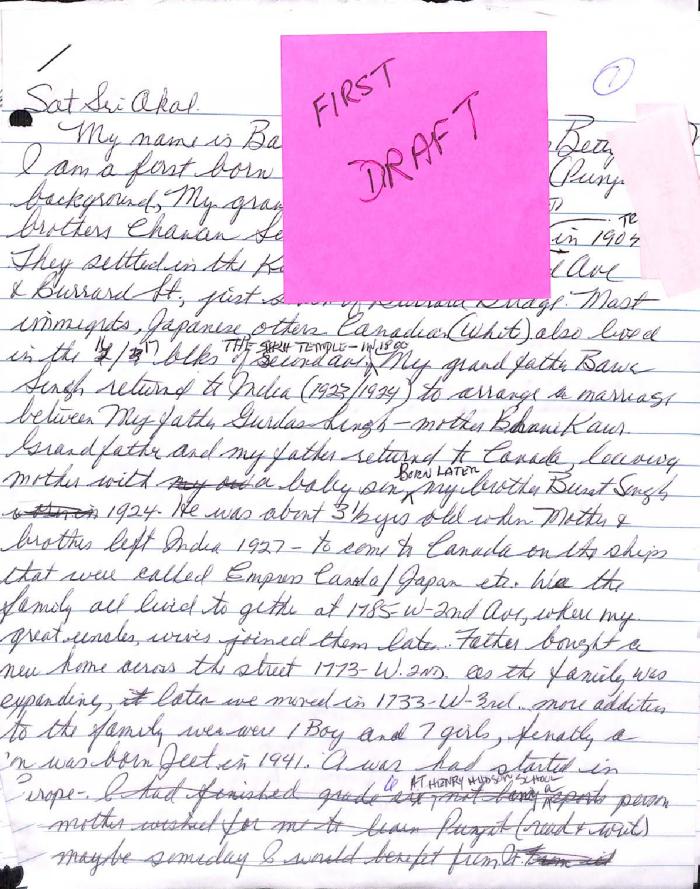 ①
FIRST
DRAFT
Sat Sri Akal.
My name is Ba Betty
I am a first born (Punj
background, My gran
brothers Chanan Se in 1904
They settled in the K Ave
& Burrard St., just Burrard Bridge Most
immigrts, Japanese others Canadian (Whit) also lived
THE SIKH TEMPLE-IN 1800
in the blks of Second Ave, My grand father Bawa
Singh returned to India (1923/1924) to arrange a marriage
between My father Gurdas Singh - mother Bhani Kaur
Grandfather and my father returned to Canada, leaving
BORN LATER
mother with my a baby son, my brother Burat Singh
1924. He was about 3½ yrs old when Mother &
brother left India 1927 - to come to Canada on the ships
that were called Empress Canda/Japan etc. We the
family all livid to gethe at 1785-W-2nd Ave, where my
great uncles, wives joined them late. Father bought a
new home across the street 1773-W. 2nd. as the family was
expanding, it later we moved in 1733-W-3rd. more additics
to the family were 1 Boy and 7 girls, fenatly a
'n was born Jeet in 1941. A war had started in
AT HENRY HUDSON SCHOOL
urope-. I had finished grade not being a sports person
mother wished for me to learn Punjabi (read & writ)
maybe someday I would benefit from it.